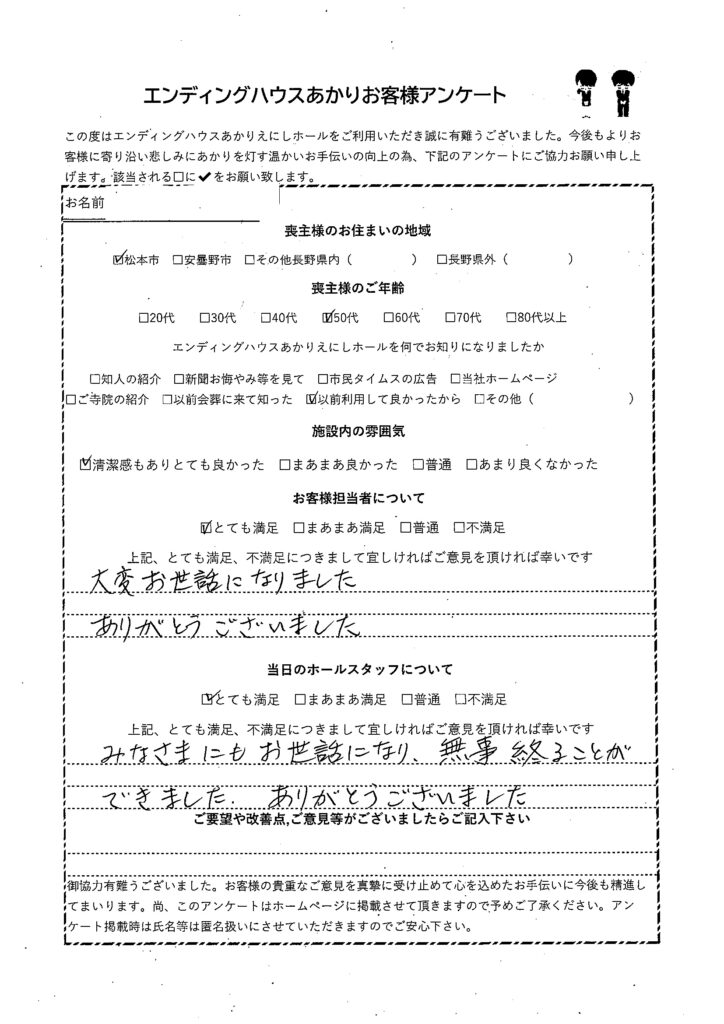 エンディングハウスあかりお客様アンケート
この度はエンディングハウスあかりえにしホールをご利用いただき誠に有難うございました。今後もよりお
客様に寄り沿い悲しみにあかりを灯す温かいお手伝いの向上の為、下記のアンケートにご協力お願い申し上
げます。該当される□に✔をお願い致します。
お名前
喪主様のお住まいの地域
☑松本市 □安曇野市 □その他長野県内（ ） □長野県外（ ）
喪主様のご年齢
□20代 □30代 □40代 ☑50代 □60代 □70代 □80代以上
エンディングハウスあかりえにしホールを何でお知りになりましたか
□知人の紹介 □新聞お悔やみ等を見て □市民タイムスの広告 □当社ホームページ
□ご寺院の紹介 □以前会葬に来て知った ☑以前利用して良かったから □その他（ ）
施設内の雰囲気
☑清潔感もありとても良かった □まあまあ良かった □普通 □あまり良くなかった
お客様担当者について
☑とても満足 □まあまあ満足 □普通 □不満足
上記、とても満足、不満足につきまして宜しければご意見を頂ければ幸いです
大変お世話になりました
ありがとうございました
当日のホールスタッフについて
☑とても満足 □まあまあ満足 □普通 □不満足
上記、とても満足、不満足につきまして宜しければご意見を頂ければ幸いです
みなさまにもお世話になり、無事終ることが
できました. ありがとうございました
ご要望や改善点,ご意見等がございましたらご記入下さい
御協力有難うございました。お客様の貴重なご意見を真摯に受け止めて心を込めたお手伝いに今後も精進し
てまいります。尚、このアンケートはホームページに掲載させて頂きますので予めご了承ください。アン
ケート掲載時は氏名等は匿名扱いにさせていただきますのでご安心下さい。